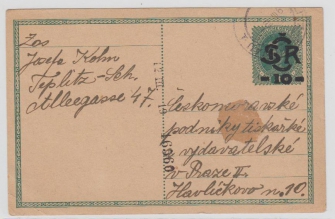 Zos
Josefa Kohn
Teplitz-Sch.
Alleegasse 47.
ČSR
-10-
Českomoravské
podniky tiskařské
vydavatelské
v Praze II.
Havlíčkovo n. 10.